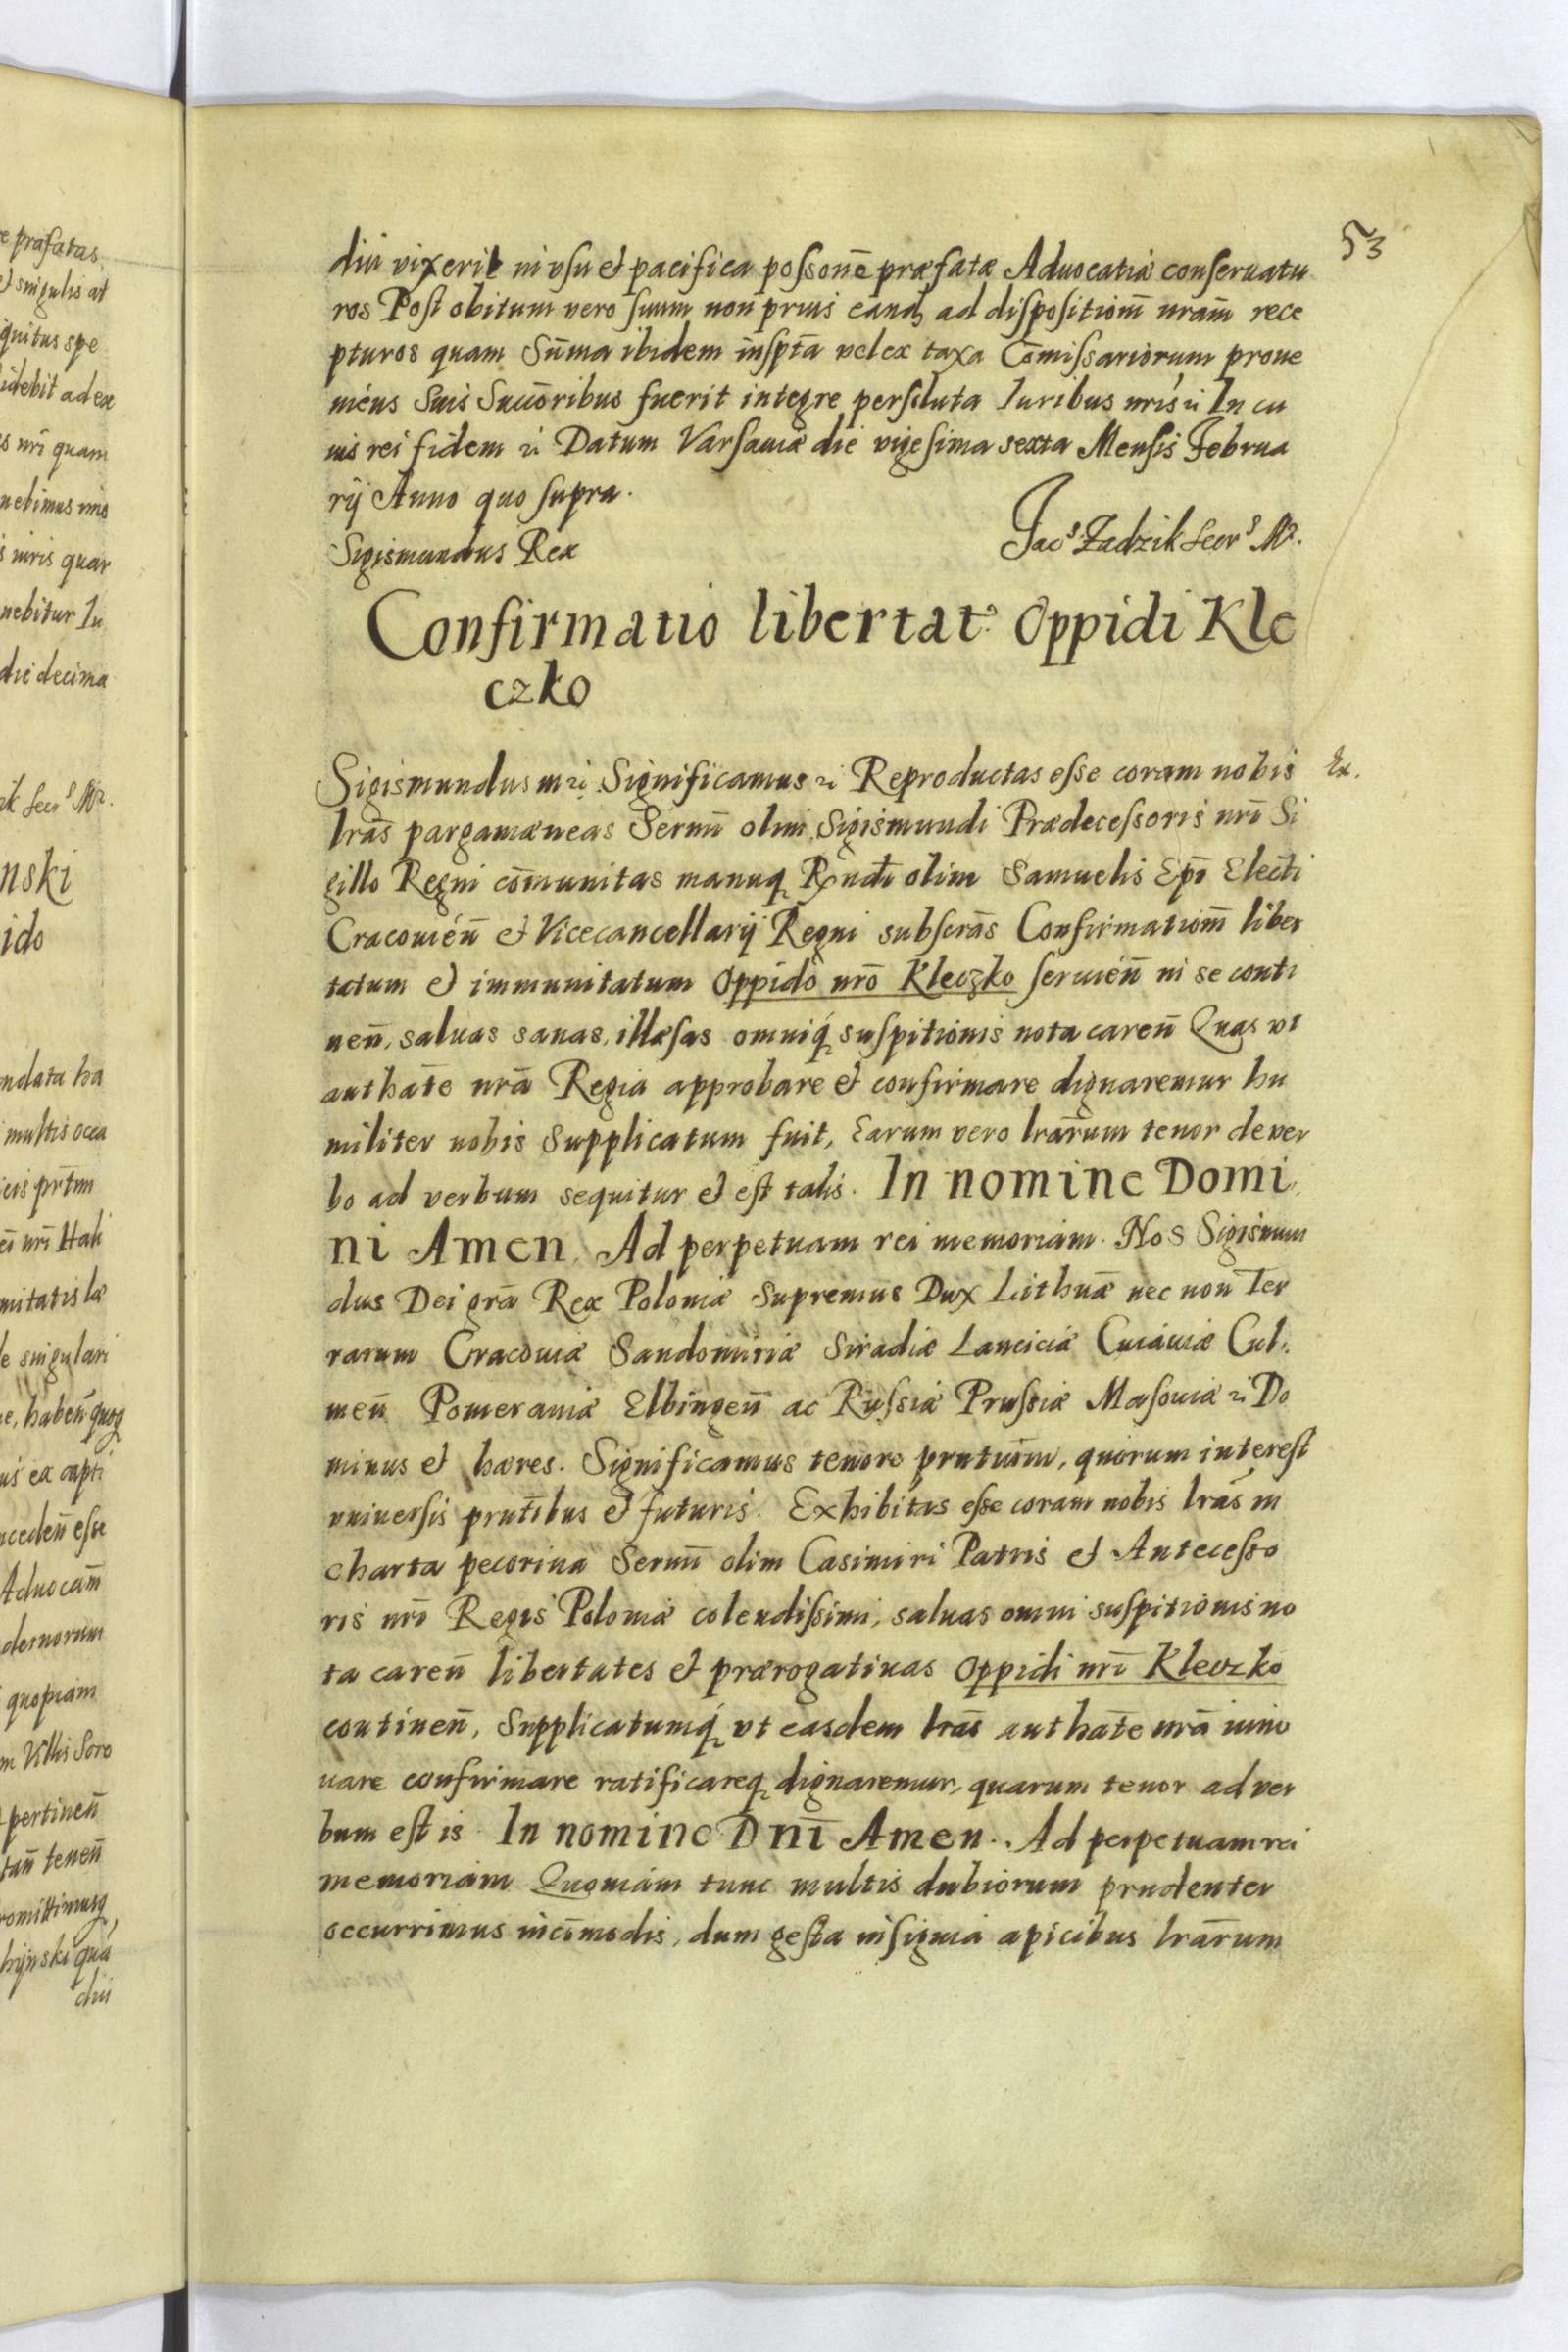 53
diu vixerit in vsu et pacifica possonē præfatæ Aduocatiæ conseruatu
ros Post obitum vero suum non prius eand ad dispositionē nrām rece
pturos quam Sūma ibidem inspta vel ex taxa Cōmissariorum proue
niens Suis Succoribus fuerit integre persoluta Iuribus nris ꝛ In cu
ius rei fidem ꝛ Datum Varsauiæ die vigesima sexta Mensis Februa
rij Anno quo supra.
Sigismundus Rex
Jac⁹ Zadzik Secr⁹ Mr.
Confirmatio libertat. Oppidi Kle
czko
Sigismundus m ꝛ Significamus ꝛ Reproductas esse coram nobis
Ex.
lrās pargamæneas Sermī olim Sigismundi Prædecessoris nrī Si
gillo Regni cōmunitas manuq Rndi olim Samuelis Epī Electi
Cracouień et Vicecancellarij Regni subscrās Confirmationē liber
tatum et immunitatum Oppido nrō Kleczko seruień in se conti
neń, saluas sanas, illæsas omniq suspitionis nota careń Quas vt
authate nrā Regia approbare et confirmare dignaremur hu
militer nobis Supplicatum fuit, Earum vero lrārum tenor de ver
bo ad verbum sequitur et est talis. In nomine Domi
ni Amen. Ad perpetuam rei memoriam. Nos Sigismun
dus Dei grā Rex Poloniæ Supremus Dux Lithuæ nec non Ter
rarum Cracouiæ Sandomiriæ Siradiæ Lanciciæ Cuiauiæ Cul
meń Pomeraniæ Elbingeń ac Russiæ Prussiæ Masouiæ ꝛ Do
minus et hæres. Significamus tenore prntium, quorum interest
vniuersis prntibus et futuris. Exhibitas esse coram nobis lrās in
charta pecorina Sermī olim Casimiri Patris et Antecesso
ris nrī Regis Poloniæ colendissimi, saluas omni suspitionis no
ta careń libertates et prærogatiuas Oppidi nrī Kleczko
contineń, Supplicatumq vt easdem lrās authate nrā inno
uare confirmare ratificareq dignaremur, quarum tenor ad ver
bum est is. In nomine Dnī Amen. Ad perpetuam rei
memoriam Quoniam tunc multis dubiorum prudenter
occurrimus incōmodis, dum gesta insignia apicibus lrārum